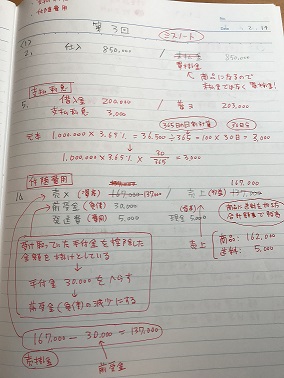 第3回
ミスノート
(1)
2. 仕入 850,000 / 買掛金
商品になるので
支払利息
5. 借入金 200,000 / 当座 203,000
支払利息 3,000
365日日割計算 30日分
元本 1,000,000 × 3.65% = 36,500 ÷ 365 = 100 × 30日 = 3,000
1,000,000 × 3.65% × 30/365 = 3,000
付随費用
167,000
売× (資産) 167,000 137,000 / 売上 (収益)
前受金 (負債) 30,000
発送費 (費用) 5,000 現金 5,000
売上
商品: 162,000
送料: 5,000
受け取っていた手付金を控除した
金額を掛けとしている
手付金 30,000 をへらす
前受金 (負債) の減少にする
167,000 − 30,000 = 137,000
売掛金
前受金